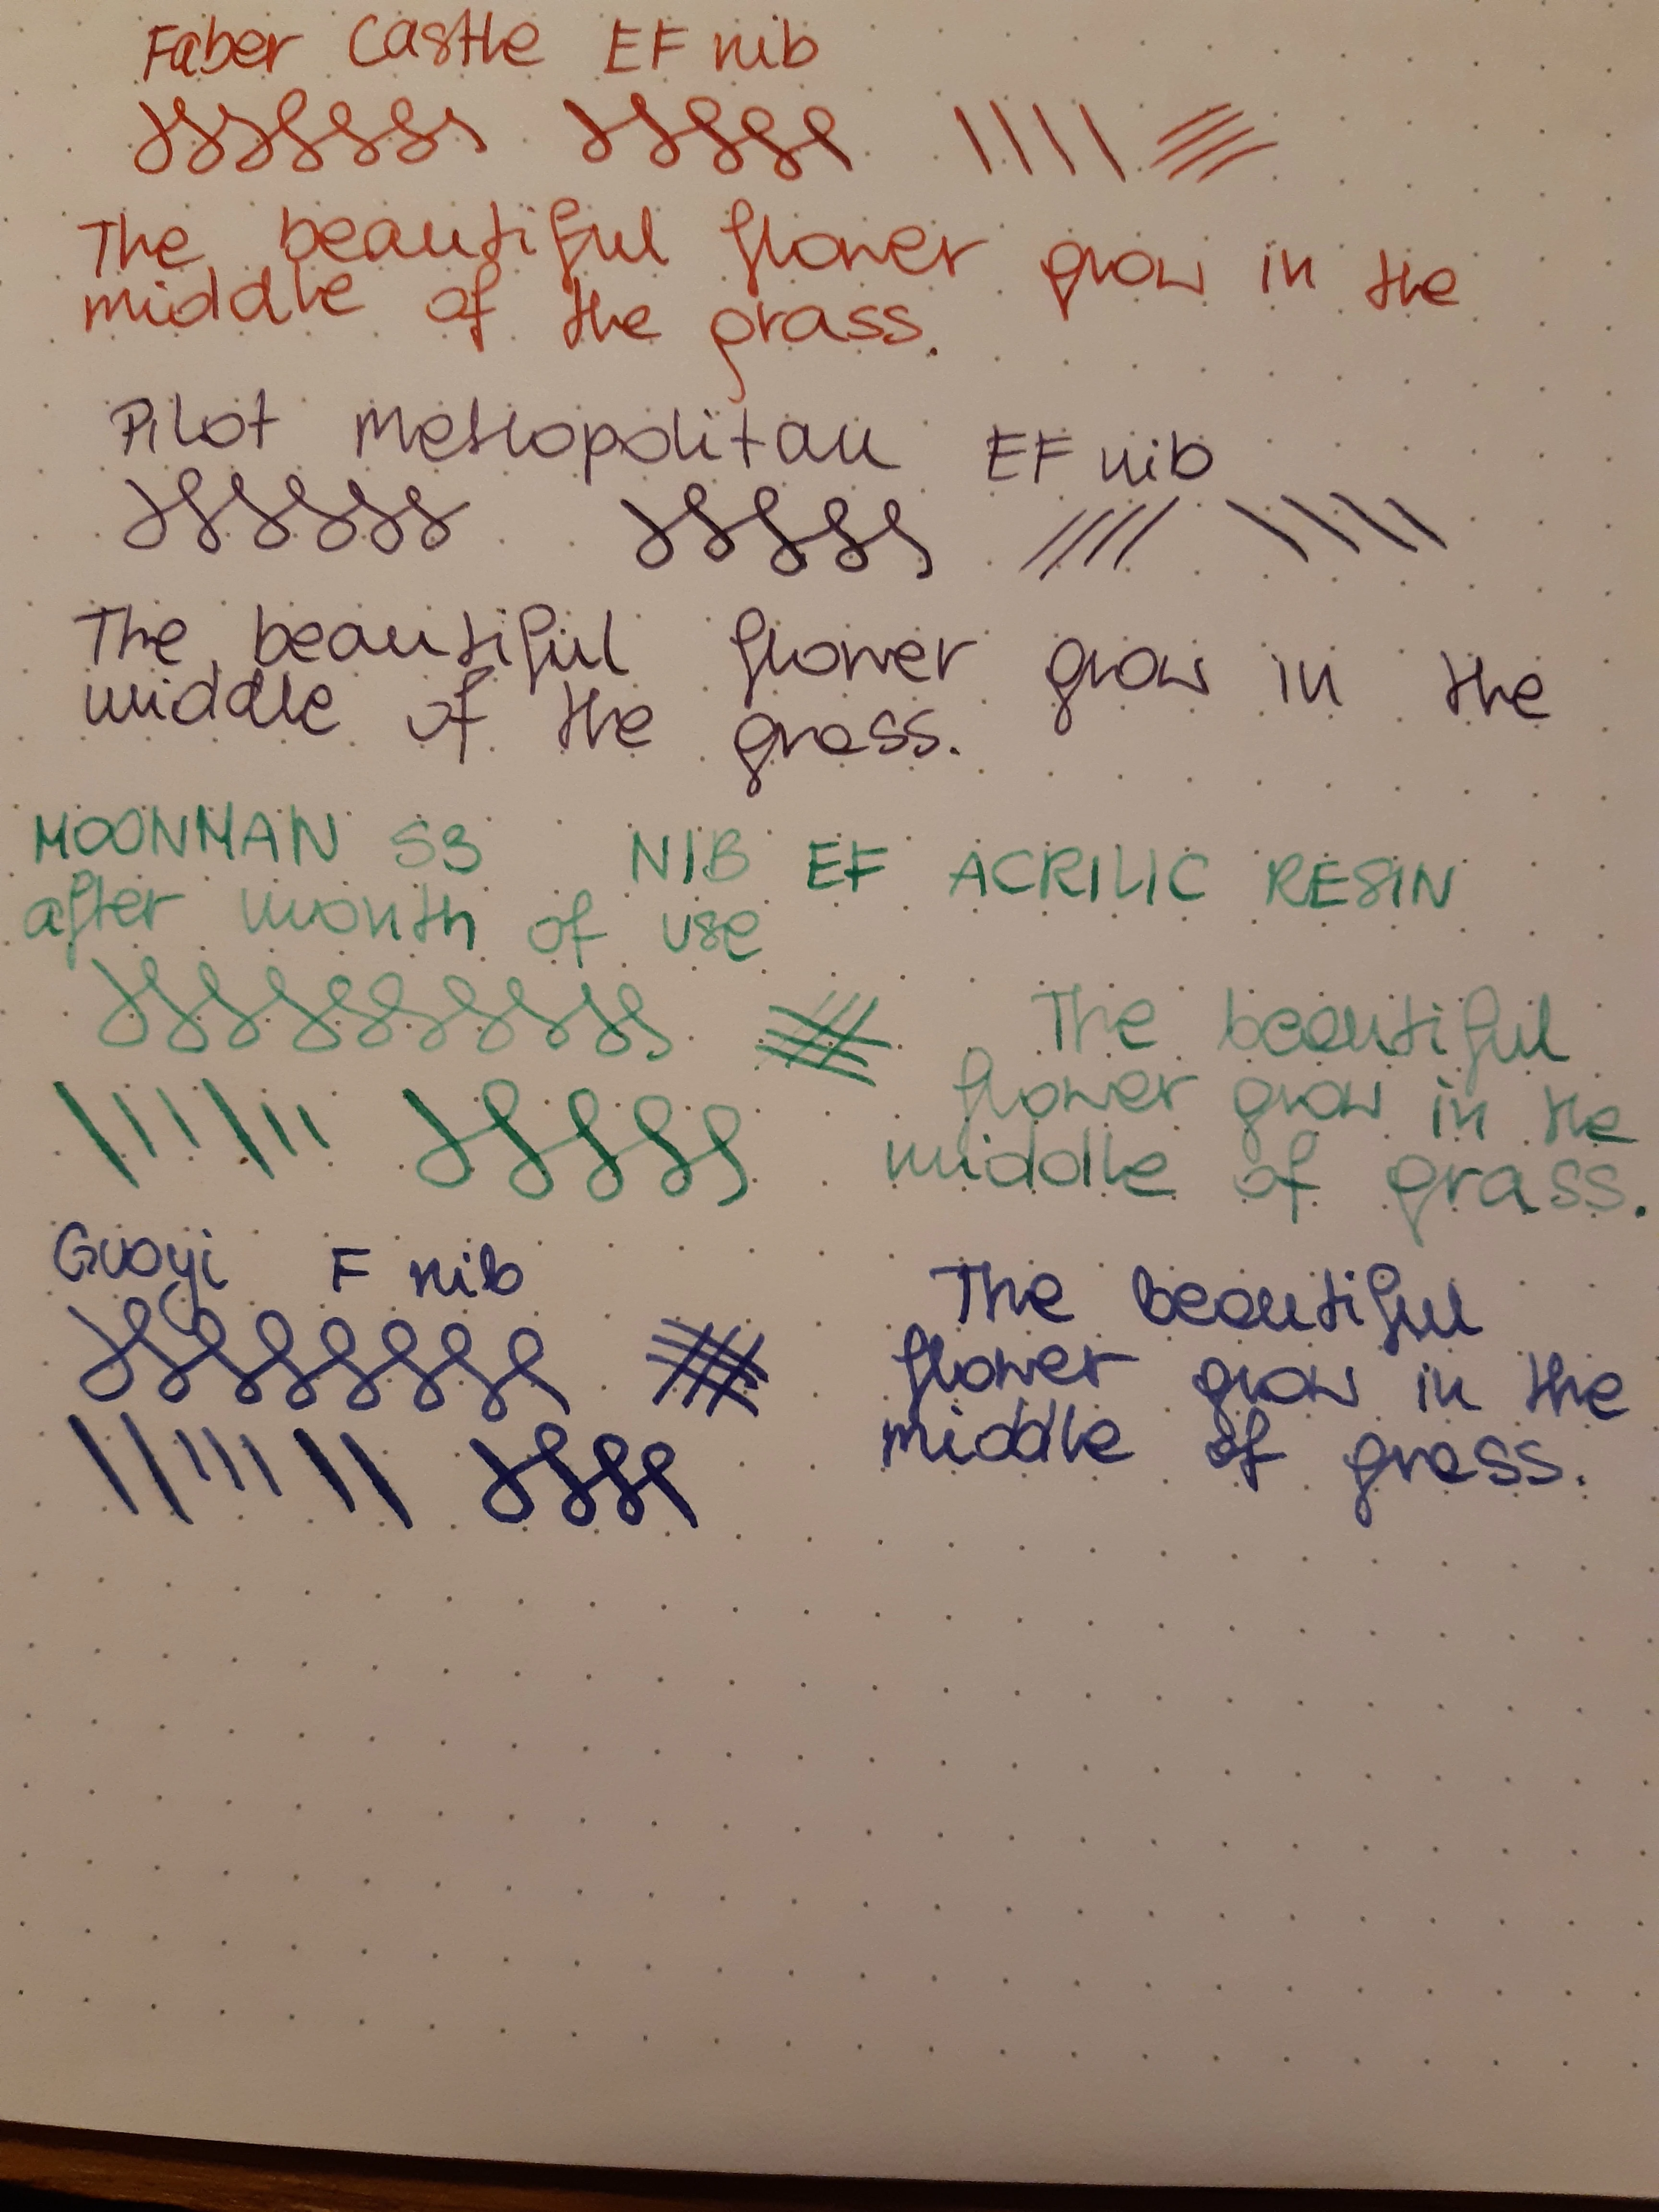 Faber Castle EF nib
The beautiful flower grow in the
middle of the grass.
Pilot Metropolitan EF nib
The beautiful flower grow in the
middle of the grass.
MOONMAN S3 NIB EF ACRILIC RESIN
after month of use
The beautiful
flower grow in the
middle of grass.
Guoyi F nib
The beautiful
flower grow in the
middle of grass.